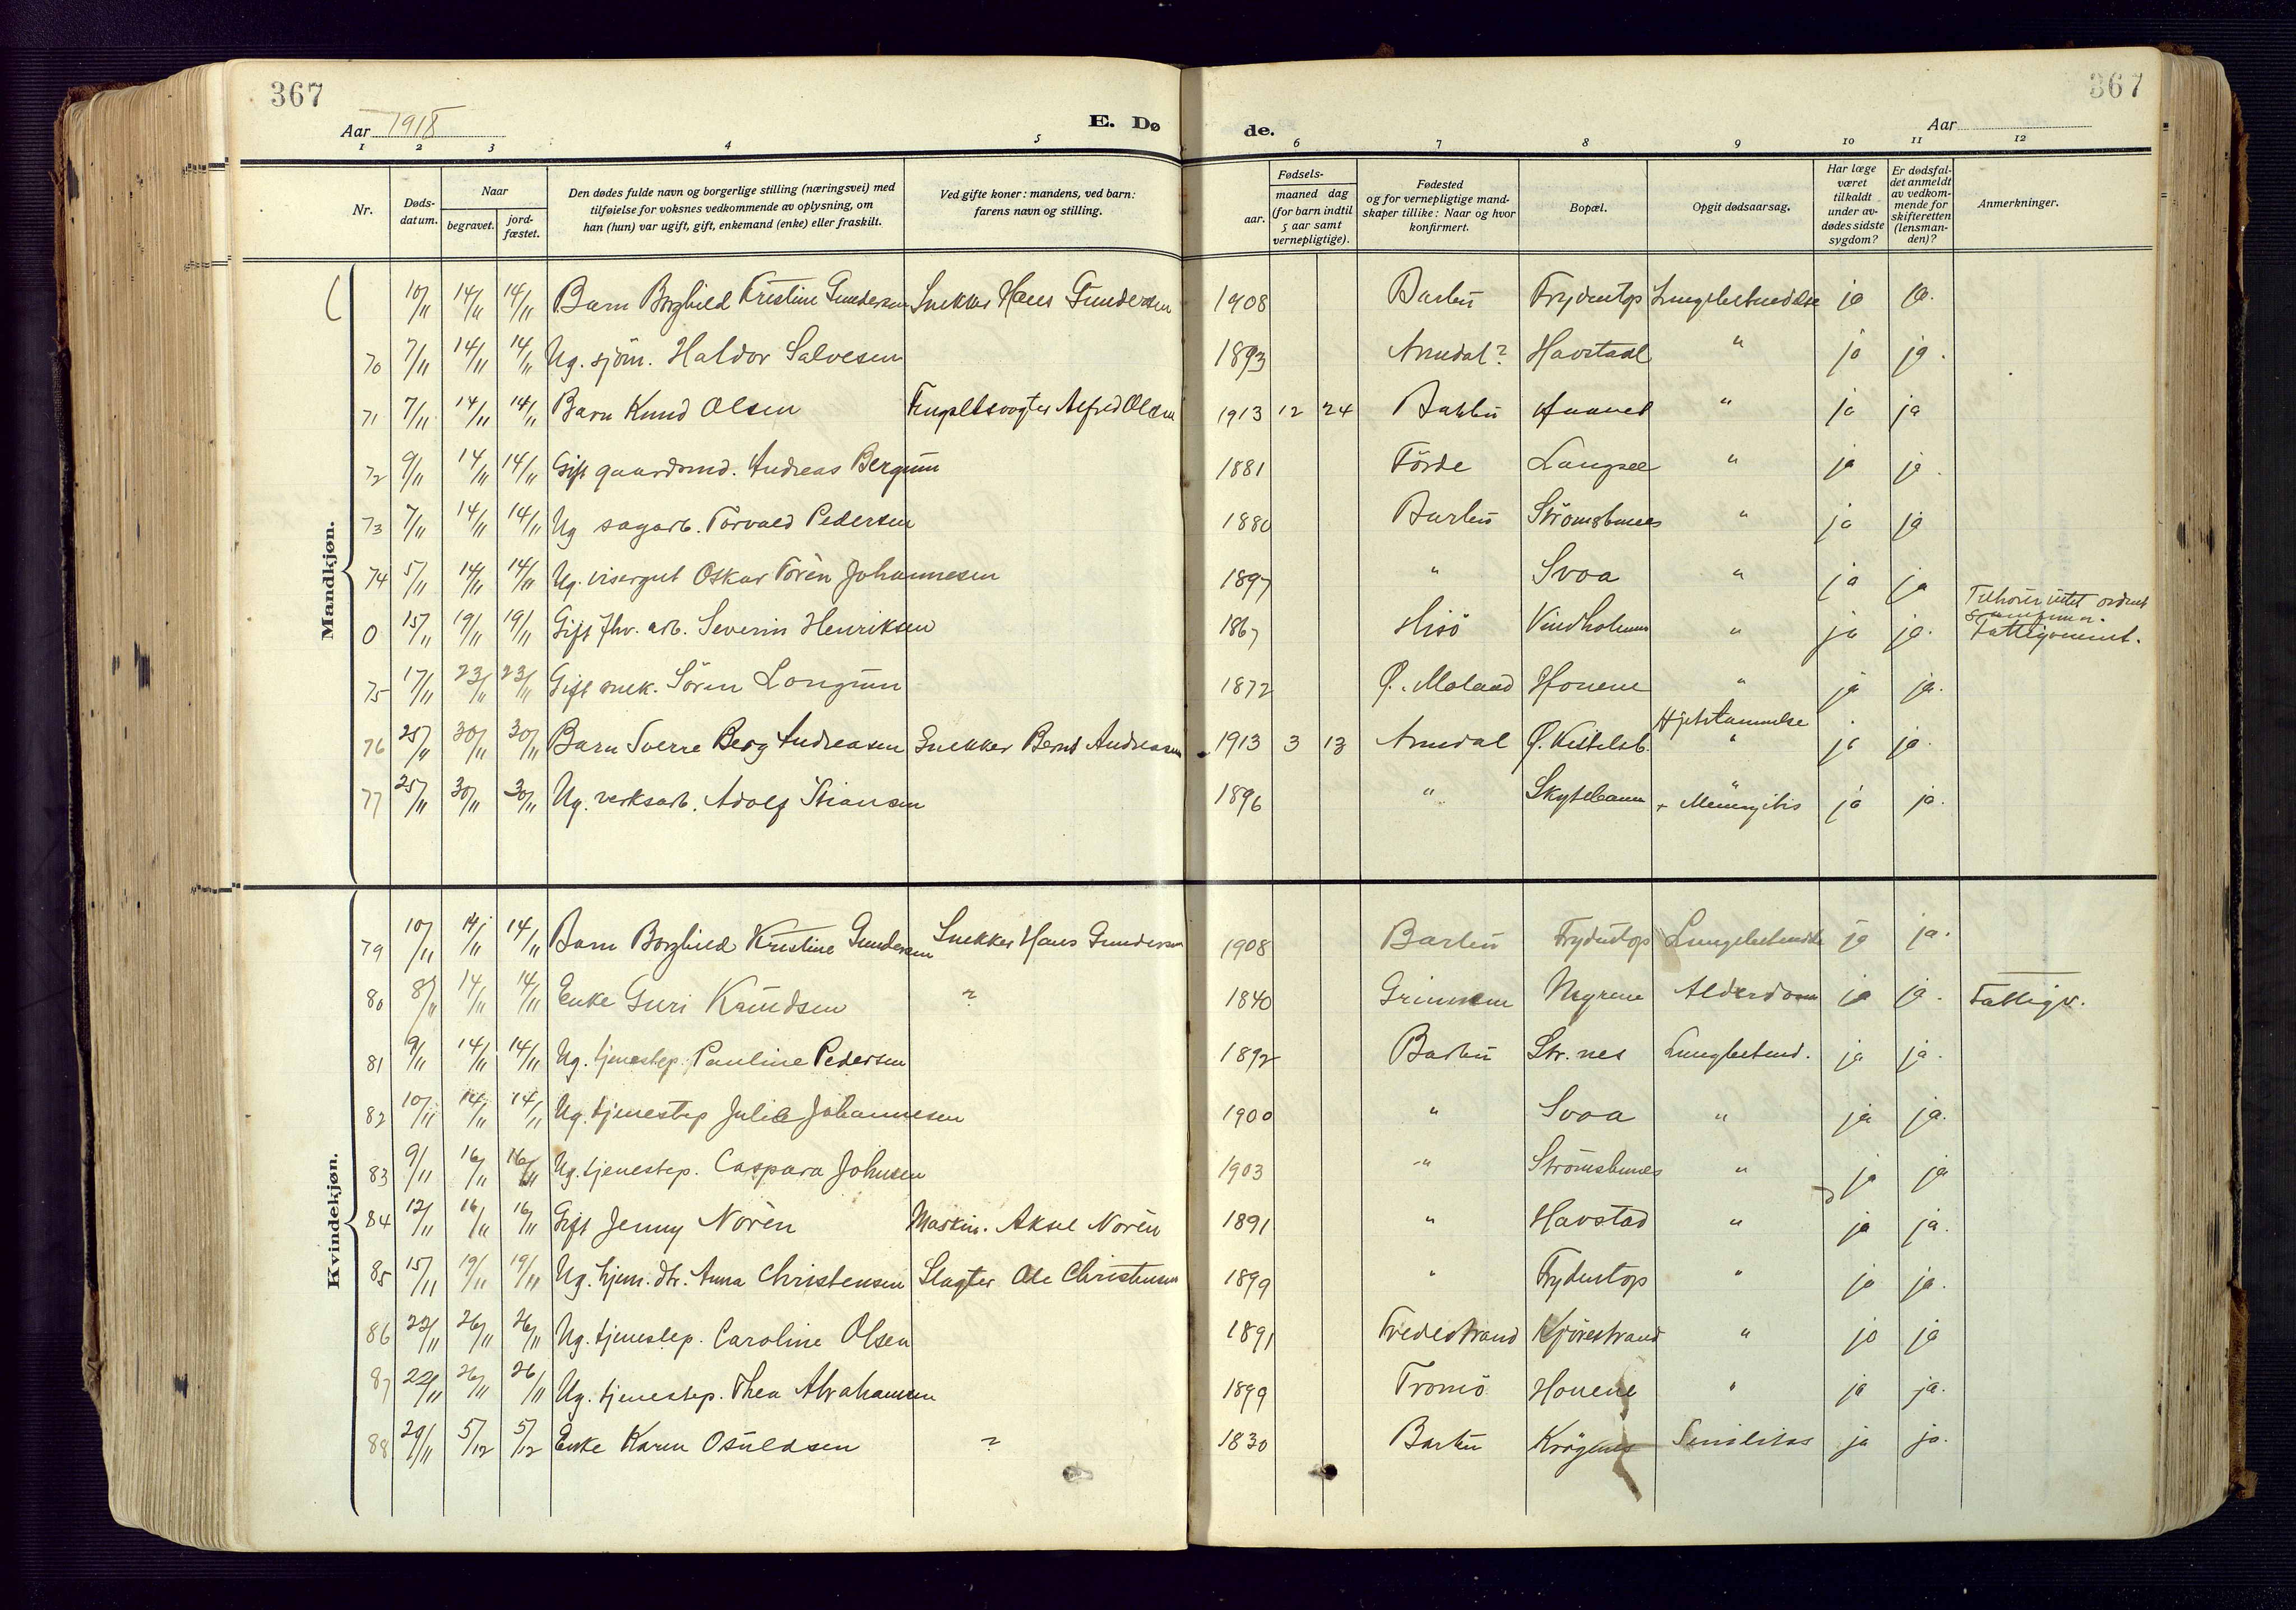 367
367
Aar 1918
E. Dø
de.
Aar
1 2 3 4 5 6 7 8 9 10 11 12
Nr.
Døds-
datum.
Naar
begravet.
jord-
fæstet.
Den dødes fulde navn og borgerlige stilling (næringsvei) med
tilføielse for voksnes vedkommende av oplysning, om
han (hun) var ugift, gift, enkemand (enke) eller fraskilt.
Ved gifte koner: mandens, ved barn:
farens navn og stilling.
Fødsels-
aar.
maaned dag
(for barn indtil
5 aar samt
vernepligtige).
Fødested
og for vernepligtige mand-
skaper tillike: Naar og hvor
konfirmert.
Bopæl.
Opgit dødsaarsag.
Har læge
været
tilkaldt
under av-
dødes sidste
sygdom?
Er dødsfal-
det anmeldt
av vedkom-
mende for
skifteretten
(lensman-
den)?
Anmerkninger.
Mandkjøn.
( 10/11 14/11 14/11 Barn Borghild Kristine Gundersen Snekker Hans Gundersen 1908 Barbu Frydentop Lungebetændelse ja ja.
70 7/11 14/11 14/11 Ug. sjöm. Haldor Salvesen 1893 Arendal? Havstad " ja ja.
71 7/11 14/11 14/11 Barn Knud Olsen Alfred Olsen 1913 12 24 Barbu " ja ja
72 9/11 14/11 14/11 Gift gaardsmd. Andreas Bergum 1881 Förde Langsæ " ja ja.
73 7/11 14/11 14/11 Ug sagarb. Torvald Pedersen 1880 Barbu Strömsbunes " ja ja
74 5/11 14/11 14/11 Ug. visergut Oskar Torèn Johannesen 1897 " Svoa " ja ja
0 15/11 19/11 19/11 Gift fhv. arb. Severin Henriksen 1867 Hisö Vindholmen " ja ja. Tilhörer intet
Fattiglemmet.
75 17/11 23/11 23/11 Gift snek. Sören Longum 1872 Ø. Moland Honene " ja ja.
76 25/11 30/11 30/11 Barn Sverre Berg Andreasen Snekker Bernt Andreasen 1913 3 13 Arendal Ø. Kittelsb. " ja ja.
77 25/11 30/11 30/11 Ug. verksarb. Adolf Stiansen 1896 " Skytebanen + Meningitis ja ja.
Kvindekjøn.
79 10/11 14/11 14/11 Barn Borghild Kristine Gundersen Snekker Hans Gundersen 1908 Barbu Frydentop Lungebetændelse ja ja.
80 8/11 14/11 14/11 Enke Guri Knudsen ? 1840 Grimstad Myrene Alderdom ja ja. Fattigv.
81 9/11 14/11 14/11 Ug. tjenestep. Pauline Pedersen 1892 Barbu Str. nes Lungebetænd. ja ja.
82 10/11 14/11 14/11 Ug. tjenestep Julie Johannesen 1900 " Svoa " ja ja.
83 9/11 16/11 16/11 Ug. tjenestep. Caspara Johnsen 1903 " Strömsbunes " ja ja
84 12/11 16/11 16/11 Gift Jenny Norèn Maskin. Aksel Norèn 1891 " Havstad " ja ja.
85 15/11 19/11 19/11 Ug. hjem. dtr. Anna Christensen Slagter Ole Christensen 1899 " Frydentop " ja ja.
86 22/11 26/11 26/11 Ug. tjenestep. Caroline Olsen 1891 Tvedestrand Kjörestrand " ja ja
87 22/11 26/11 26/11 Ug. tjenestep. Thea Abrahamsen 1899 Tromö Honene " ja ja.
88 29/11 5/12 5/12 Enke Karen Osuldsen ? 1830 Barbu Krögenes Senilitas ja ja.